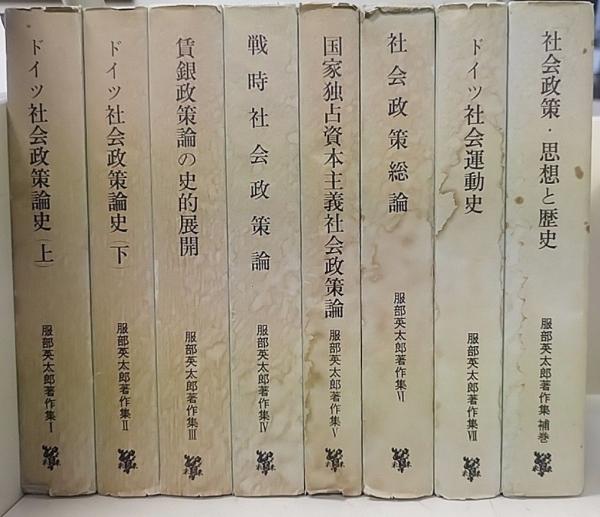 ドイツ社会政策論史(上)
服部英太郎著作集Ⅰ
ドイツ社会政策論史(下)
服部英太郎著作集Ⅱ
賃銀政策論の史的展開
服部英太郎著作集Ⅲ
戦時社会政策論
服部英太郎著作集Ⅳ
国家独占資本主義社会政策論
服部英太郎著作集Ⅴ
社会政策総論
服部英太郎著作集Ⅵ
ドイツ社会運動史
服部英太郎著作集Ⅶ
社会政策・思想と歴史
服部英太郎著作集 補巻